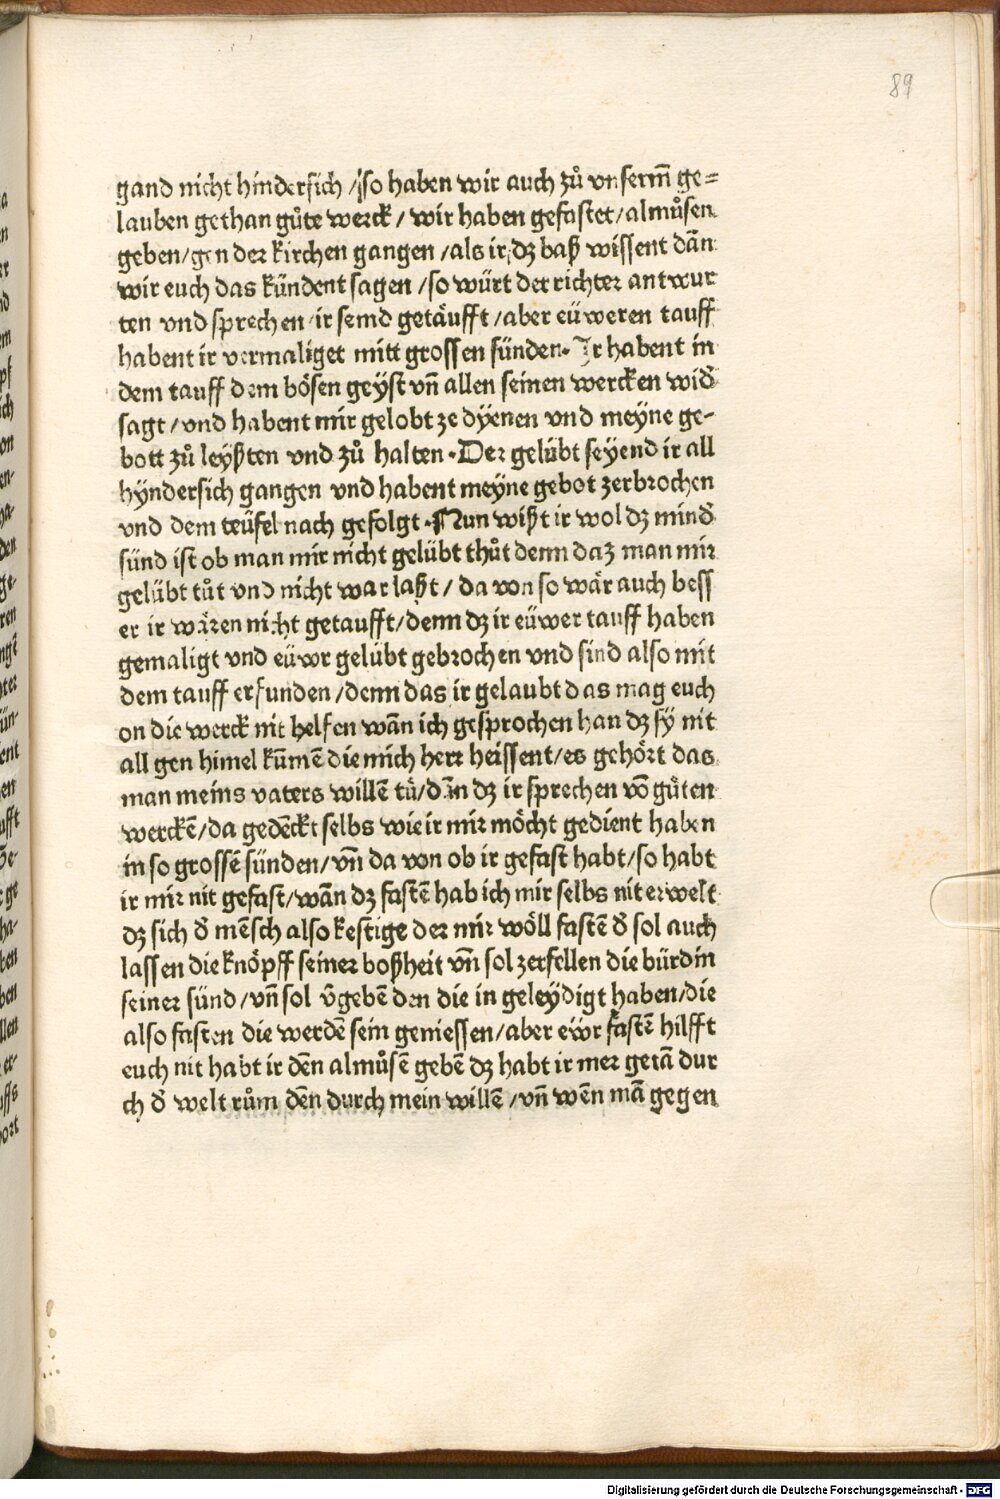 89
gand nicht hindersich / so haben wir auch zů vnserm̄ ge=
lauben gethan gůte werck / wir haben gefastet / almůsen
geben / gen der kirchen gangen / als ir dz baß wissent dān
wir euch das kündent sagen / so würt der richter antwur
ten vnd sprechen ir seind getäufft / aber eüweren tauff
habent ir vermaliget mitt grossen sünden. Ir habent in
dem tauff dem bösen geÿst vn̄ allen seinen wercken wid̄
sagt / vnd habent mir gelobt ze dyenen vnd meyne ge-
bott zů leyßten vnd zů halten. Der gelübt seyend ir all
hÿndersich gangen vnd habent meyne gebot zerbrochen
vnd dem teüfel nach gefolgt. Nun wißt ir wol dz mind̄
sünd ist ob man mir nicht gelübt thůt denn daz man mir
gelübt tůt vnd nicht war laßt / da von so wär auch bess
er ir wären nicht getaufft / denn dz ir eüwer tauff haben
gemaligt vnd eüwr gelübt gebrochen vnd sind also mit
dem tauff erfunden / denn das ir gelaubt das mag euch
on die werck nit helfen wān ich gesprochen han dz sÿ nit
all gen himel kūmē die mich herr heissent / es gehört das
man meins vaters willē tü / dān dz ir sprechen vō güten
werckē / da gedēckt selbs wie ir mir möcht gedient haben
in so grossē sünden / vn̄ da von ob ir gefast habt / so habt
ir mir nit gefast / wān dz fastē hab ich mir selbs nit erwelt
dz sich d̄ mēsch also kestige der mir wöll fastē d̄ sol auch
lassen die knöpff seiner boßheit vn̄ sol zerfellen die bürdin
seiner sünd / vn̄ sol v̄gebē den die in geleÿdigt haben / die
also fasten die werdē sein geniessen / aber eẅr fastē hilfft
euch nit habt ir dēn almůsē gebē dz habt ir mer getā dur
ch d̄ welt rům dēn durch mein willē / vn̄ wēn mā gegen
Digitalisierung gefördert durch die Deutsche Forschungsgemeinschaft - DFG